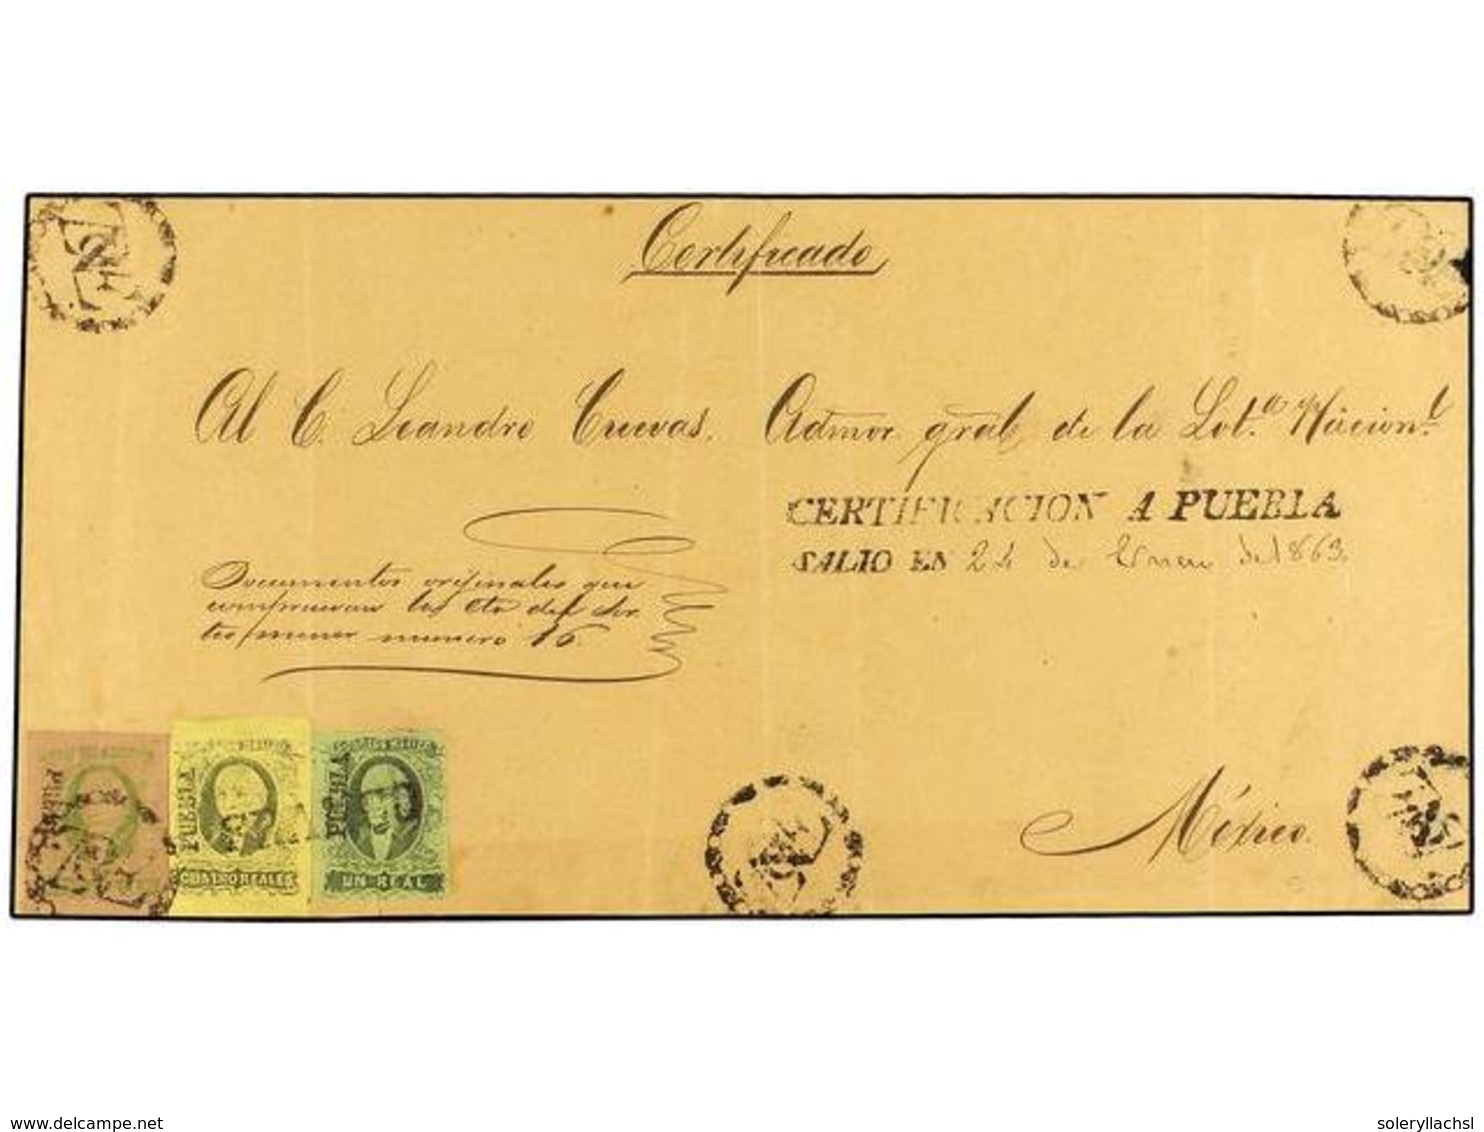 Certificado
Al C. Leandro Cuevas. Admor. gral. de la Lot.ª Nacion.l
CERTIFICACION A PUEBLA
SALIO EN 24 de Enero de 1863.
Documentos originales que
comprueban la cta del Sor
teo menor numero 16.
PUEBLA
PUEBLA
PUEBLA
CORREOS MEJICO
CUATRO REALES
UN REAL
México.
www.delcampe.net
soleryllachsl